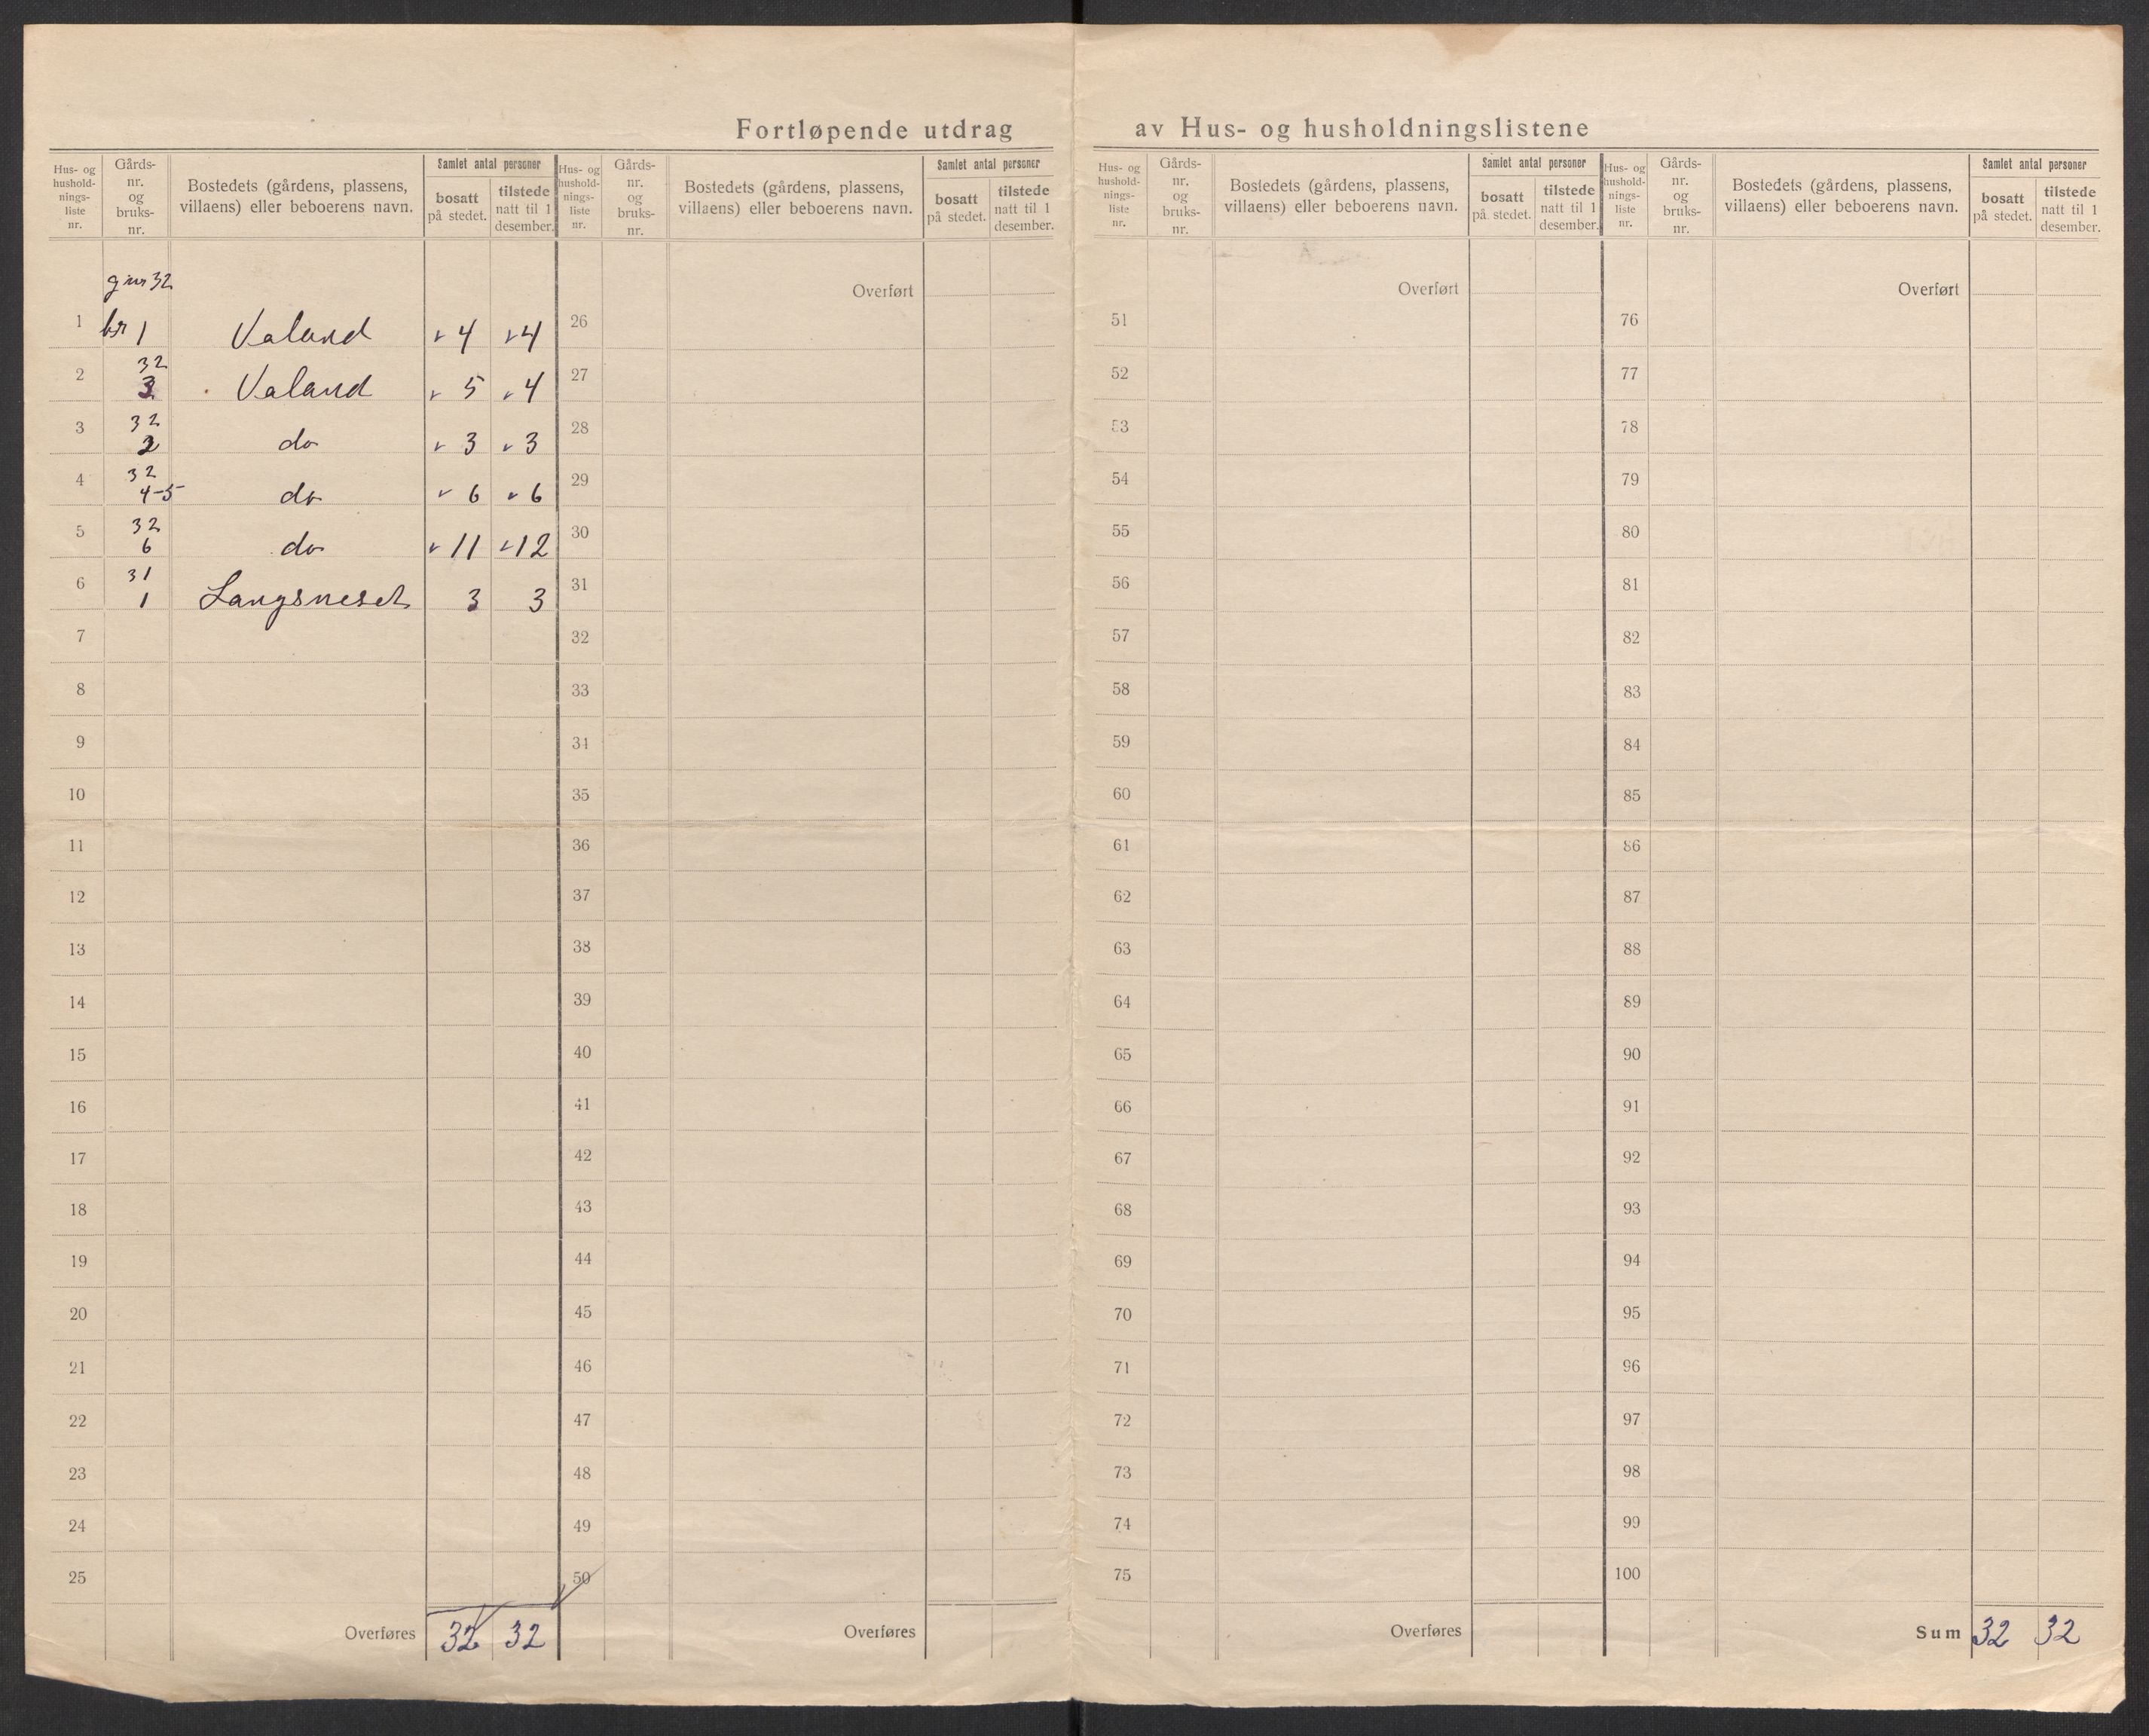 Fortløpende utdrag av Hus- og husholdningslistene
Hus- og hushold- nings- liste nr.
Gårds- nr. og bruks- nr.
Bostedets (gårdens, plassens, villaens) eller beboerens navn.
Samlet antal personer
bosatt på stedet.
tilstede natt til 1 desember.
Hus- og hushold- nings- liste nr.
Gårds- nr. og bruks- nr.
Bostedets (gårdens, plassens, villaens) eller beboerens navn.
Samlet antal personer
bosatt på stedet.
tilstede natt til 1 desember.
Hus- og hushold- nings- liste nr.
Gårds- nr. og bruks- nr.
Bostedets (gårdens, plassens, villaens) eller beboerens navn.
Samlet antal personer
bosatt på stedet.
tilstede natt til 1 desember.
Hus- og hushold- nings- liste nr.
Gårds- nr. og bruks- nr.
Bostedets (gårdens, plassens, villaens) eller beboerens navn.
Samlet antal personer
bosatt på stedet.
tilstede natt til 1 desember.
gnr 32
Overført
Overført
Overført
1 br 1 Valand 4 4 26 51 76
32
2 3 Valand 5 4 27 52 77
32
3 2 do 3 3 28 53 78
32
4 4-5 do 6 6 29 54 79
32
5 6 do 11 12 30 55 80
31
6 1 Langsneset 3 3 31 56 81
7 32 57 82
8 33 58 83
9 34 59 84
10 35 60 85
11 36 61 86
12 37 62 87
13 38 63 88
14 39 64 89
15 40 65 90
16 41 66 91
17 42 67 92
18 43 68 93
19 44 69 94
20 45 70 95
21 46 71 96
22 47 72 97
23 48 73 98
24 49 74 99
25 50 75 100
Overføres 32 32 Overføres Overføres Sum 32 32